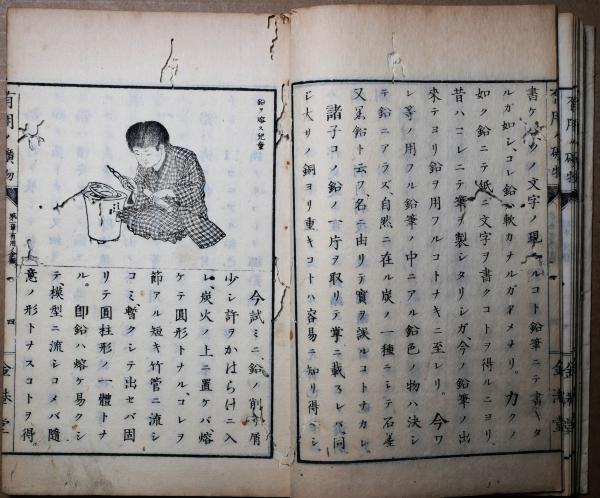 書ケバ、ソノ文字ノ現ハルルコト鉛筆ニテ書キタ
ルガ如シ、コレ鉛ノ軟カナルガタメナリ。カクノ
如ク鉛ニテ紙ニ文字ヲ書クコトヲ得ルニヨリ、
昔ハコレニテ筆ヲ製シタリシガ、今ノ鉛筆ノ出
来テヨリ鉛ヲ用フルコトナキニ至レリ。今ワ
レ等ノ用フル鉛筆ノ中ニアル鉛色ノ物ハ決シ
テ鉛ニアラズ、自然ニ在ル炭ノ一種ニシテ石墨
又黒鉛ト云フ、名ニ由リテ實ヲ誤ルコトナカレ。
諸子コノ鉛ノ一片ヲ取リテ掌ニ載ラレバ、同
ジ大サノ銅ヨリ重キコトハ容易ニ知リ得ベシ
鉛ヲ溶ス兒童
今試ミニ、鉛ノ削リ屑
少シ許ヲかはらけニ入
レ、炭火ノ上ニ置ケバ熔
ケテ圓形トナル、コレヲ
節アル短キ竹管ニ流シ
コミ、暫クシテ出セバ固
リテ圓柱形ノ一體トナ
ル。卽鉛ハ熔ケ易クシ
テ、模型ニ流シコメバ隨
意ノ形トナスコトヲ得。
有用ノ礦物
四
金港堂